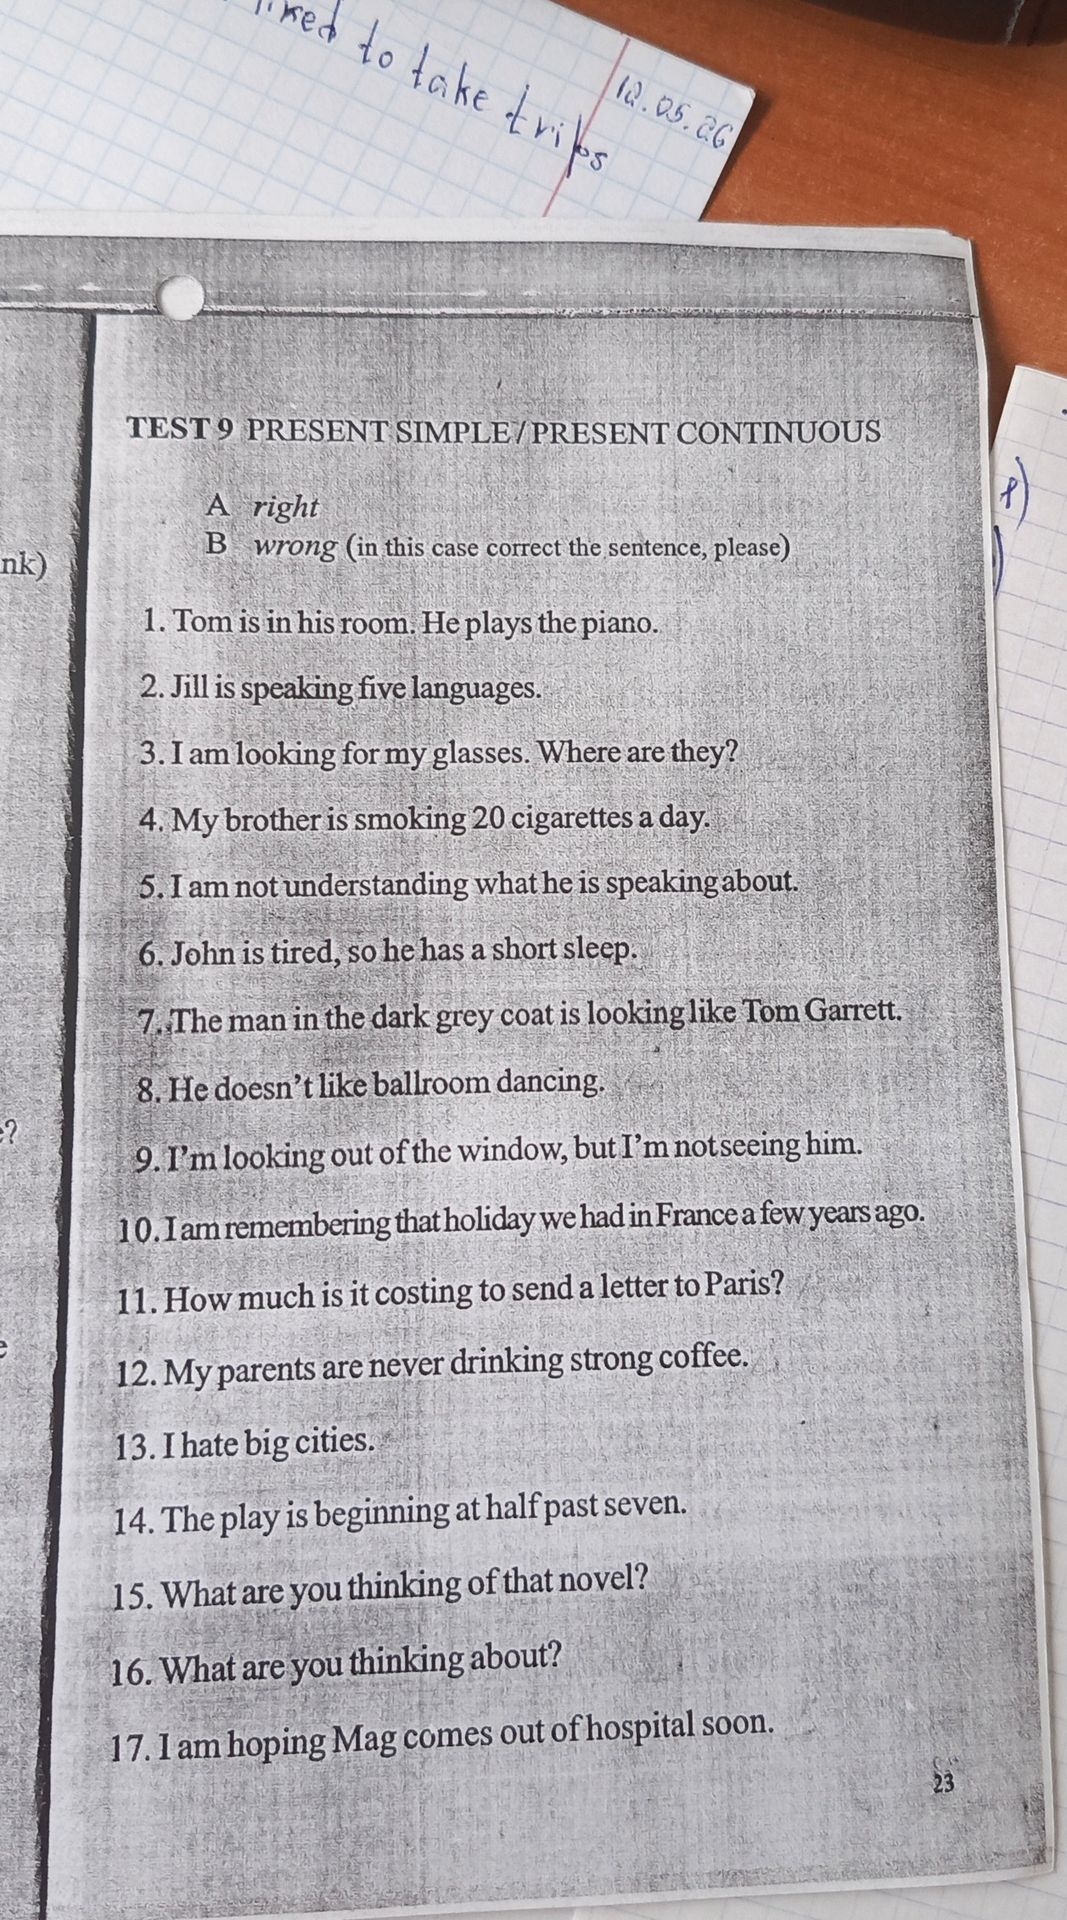 to take trips
12.05.26
TEST 9 PRESENT SIMPLE/PRESENT CONTINUOUS
A right
B wrong (in this case correct the sentence, please)
nk)
1. Tom is in his room. He plays the piano.
2. Jill is speaking five languages.
3. I am looking for my glasses. Where are they?
4. My brother is smoking 20 cigarettes a day.
5. I am not understanding what he is speaking about.
6. John is tired, so he has a short sleep.
7. The man in the dark grey coat is looking like Tom Garrett.
8. He doesn't like ballroom dancing.
?
9. I'm looking out of the window, but I'm not seeing him.
10. I am remembering that holiday we had in France a few years ago.
11. How much is it costing to send a letter to Paris?
12. My parents are never drinking strong coffee.
13. I hate big cities.
14. The play is beginning at half past seven.
15. What are you thinking of that novel?
16. What are you thinking about?
17. I am hoping Mag comes out of hospital soon.
23